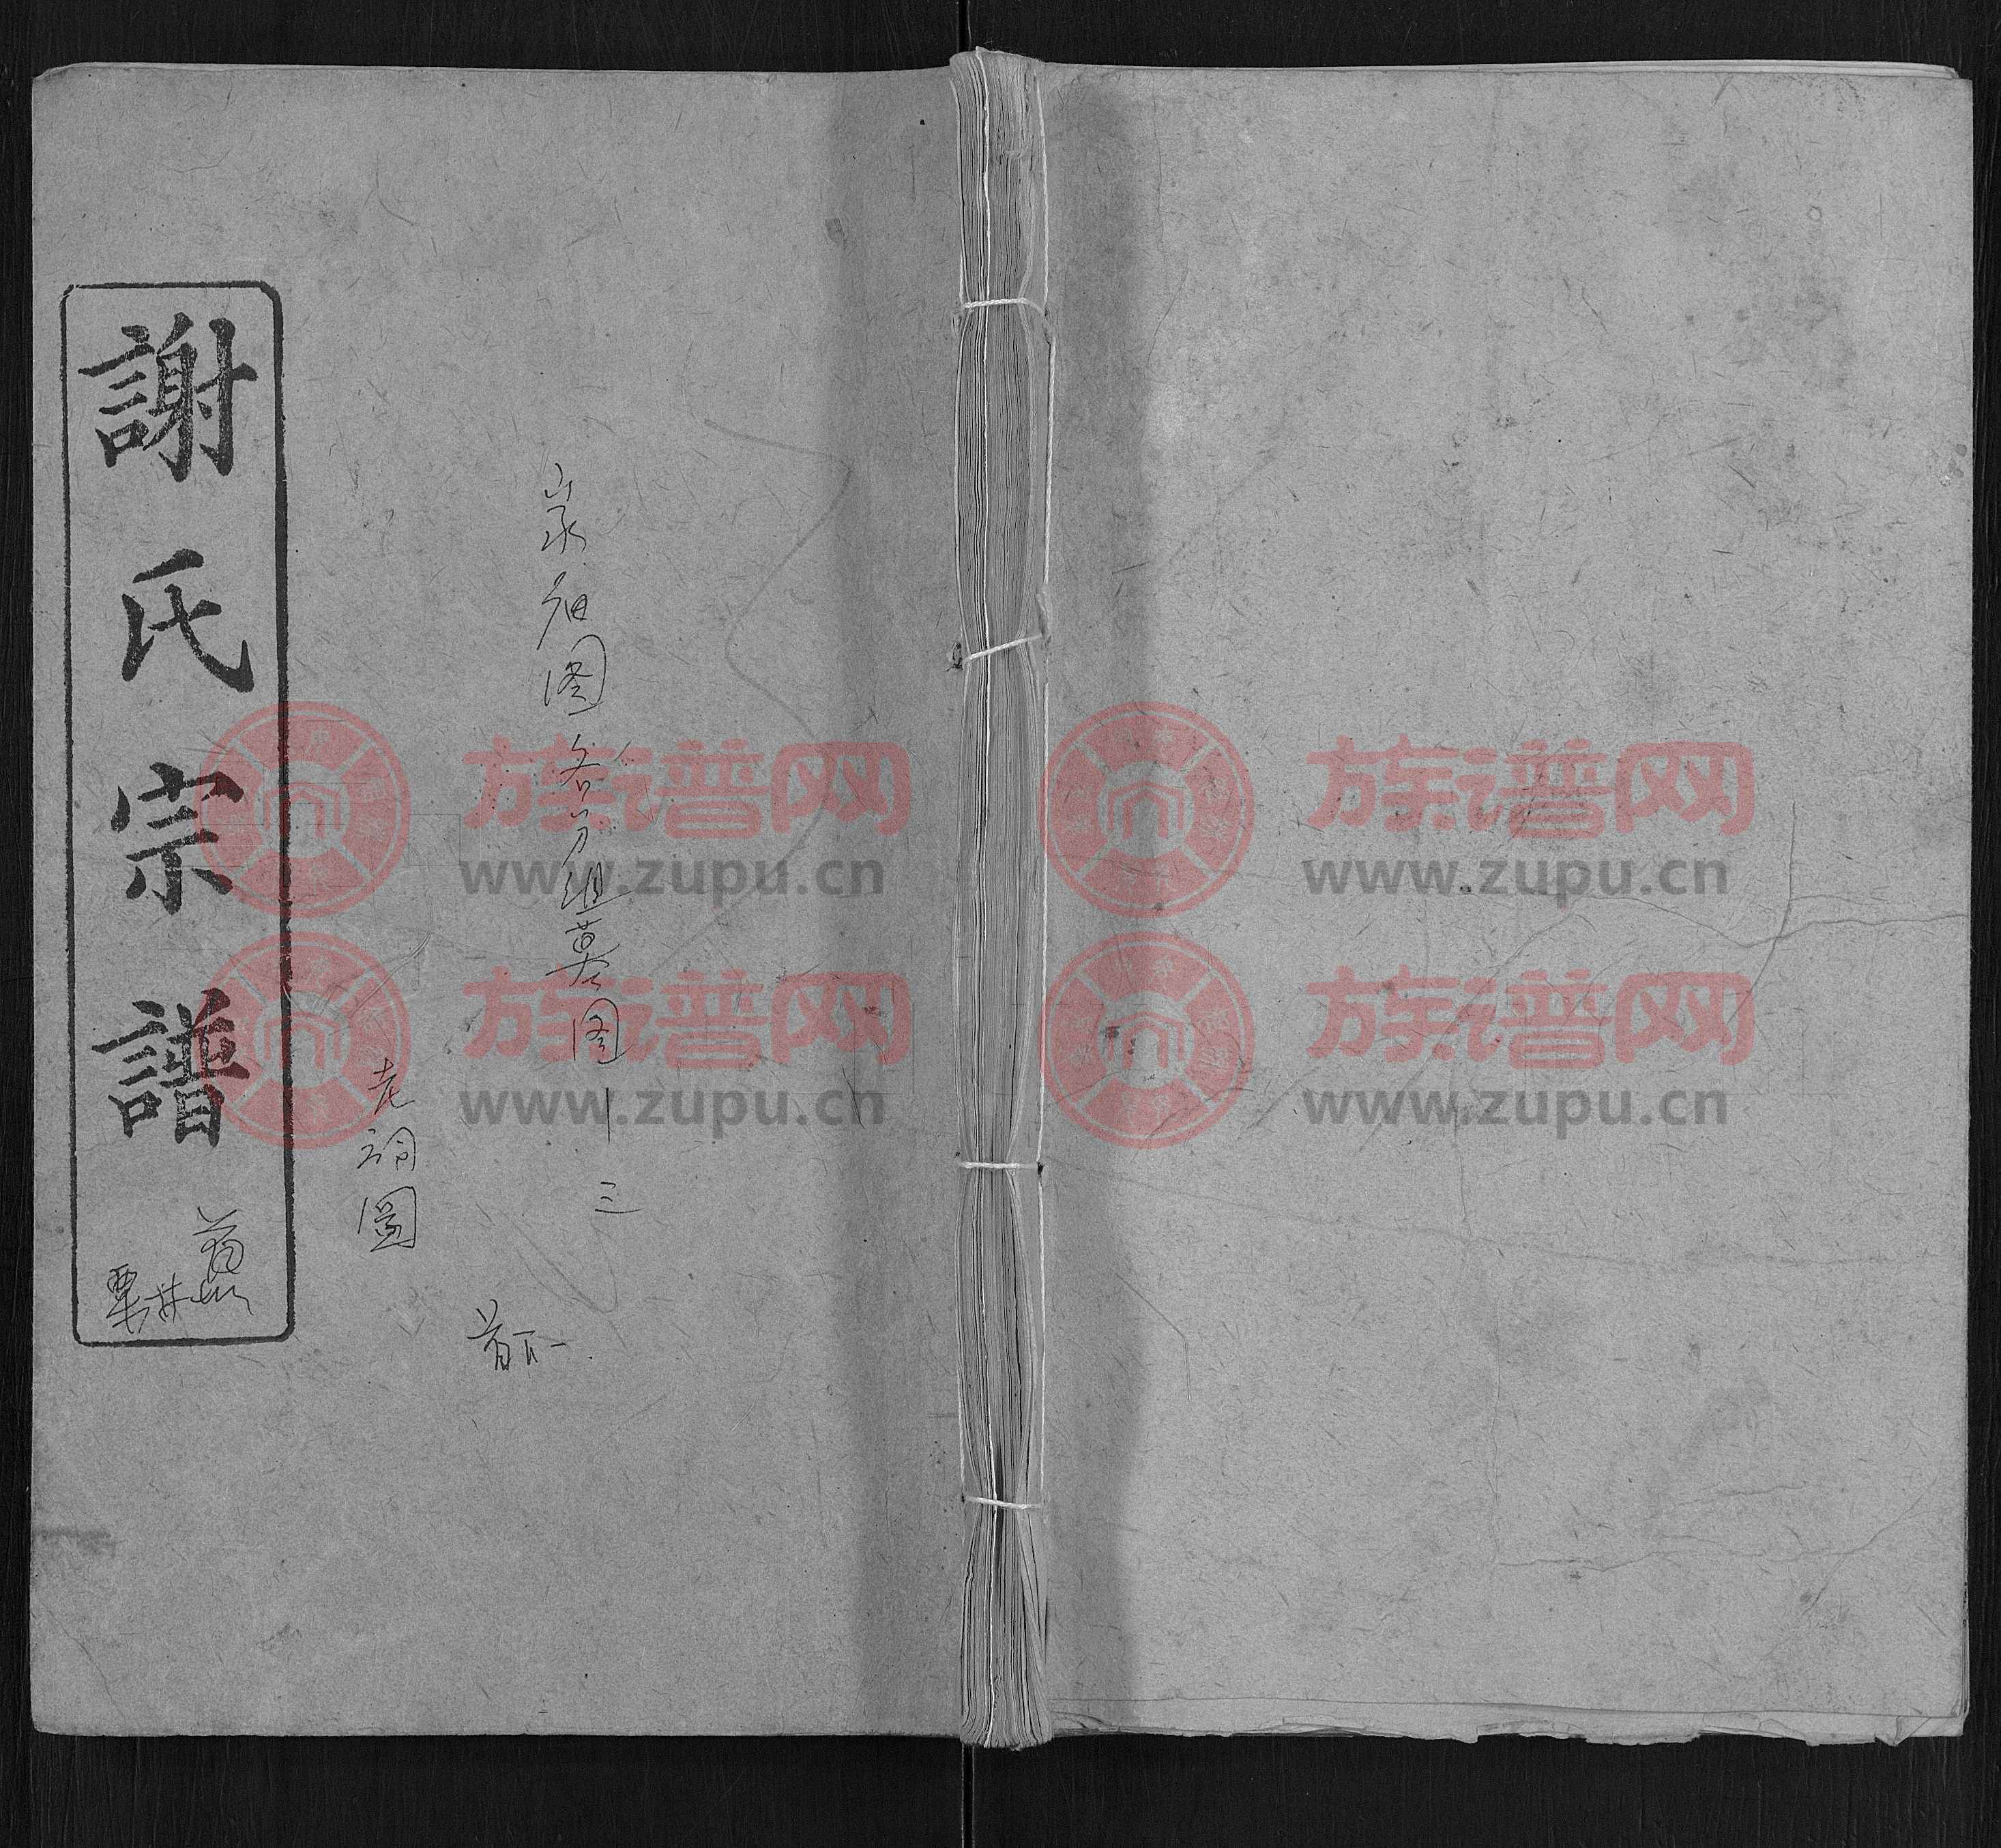 謝氏宗譜
各分祖墓图 一 三
老祠圖
族谱网
www.zupu.cn
族谱网
www.zupu.cn
族谱网
www.zupu.cn
族谱网
www.zupu.cn